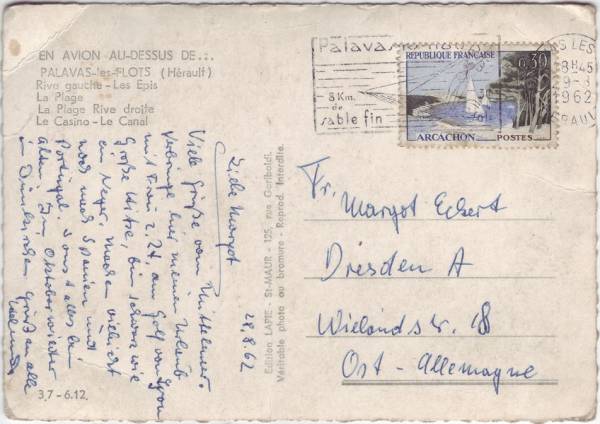 EN AVION AU-DESSUS DE...
PALAVAS-les-FLOTS (Hérault)
Rive gauche - Les Epis
La Plage
La Plage Rive droite
Le Casino - Le Canal
Palavas
8 Km.
de
sable fin
8H45
1962
RÉPUBLIQUE FRANÇAISE
0,30
ARCACHON POSTES
28.8.62
Liebe Margot
Viele Grüße vom Mittelmeer.
Verbringe hier meinen Urlaub
mit Frau z. Zt. am Golf von Lyon
Große Hitze, bin schwarz wie
ein Neger. Machen vielleicht
noch nach Spanien und
Portugal. Sonst alles beim
alten. Im Oktober wieder
in Grüßen alle
3,7 - 6.12.
Edition LAPIE - St-MAUR - 125, rue Garibaldi.
Véritable photo au bromure - Reprod. Interdite.
Fr. Margot Eckert
Dresden A
Wielandstr. 18
Ost-Allemagne